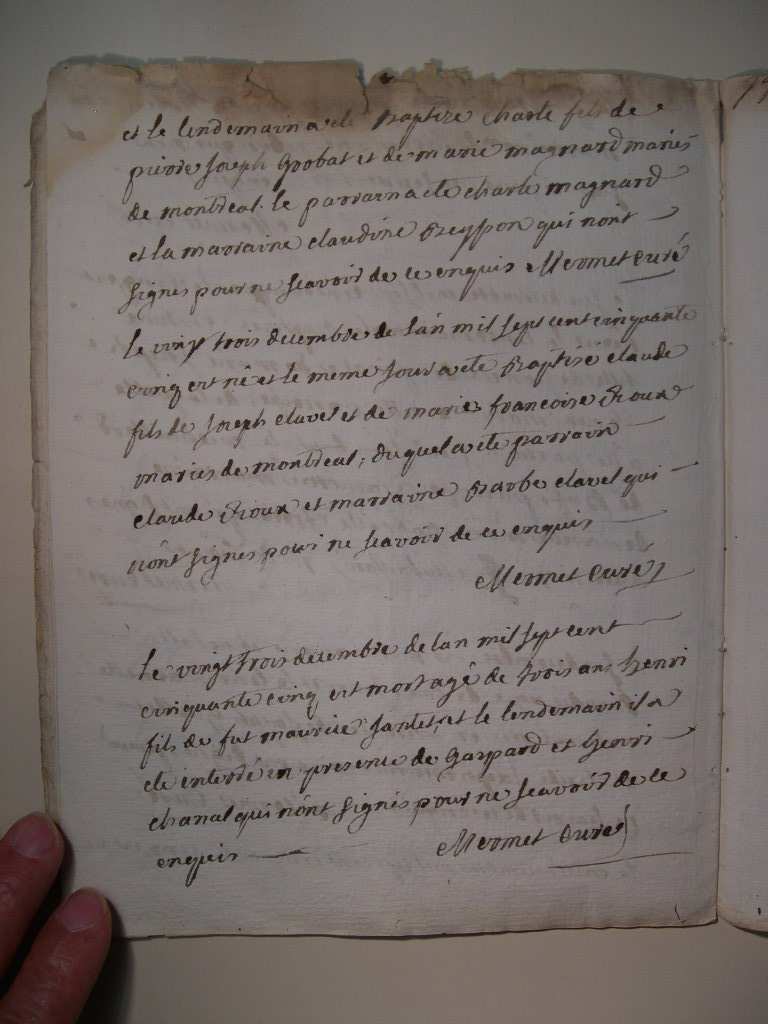 et le lendemain a ete Baptize charle fils de
pierre Joseph Goobat et de marie magnard mariés
de montreal. le parrain a ete charle magnard
et la marraine claudine Breyson qui nont
signes pour ne scavoir de ce enquis Mermet curé
le vingt trois decembre de l'an mil sept cent cinquante
cinq est né et le meme jour a ete Baptisé claude
fils de Joseph clavel et de marie francoise Rioux
maries de montreal, duquel a ete parrain
claude Rioux et marraine Barbe clavel qui
n'ont signes pour ne scavoir de ce enquis
Mermet curé
le vingt trois decembre de lan mil sept cent
cinquante cinq est mort agé de trois ans henri
fils de fut maurice Jantet, et le lendemain il a
ete enterré en presence de Gaspard et henri
chanal qui n'ont signés pour ne scavoir de ce
enquis Mermet curé